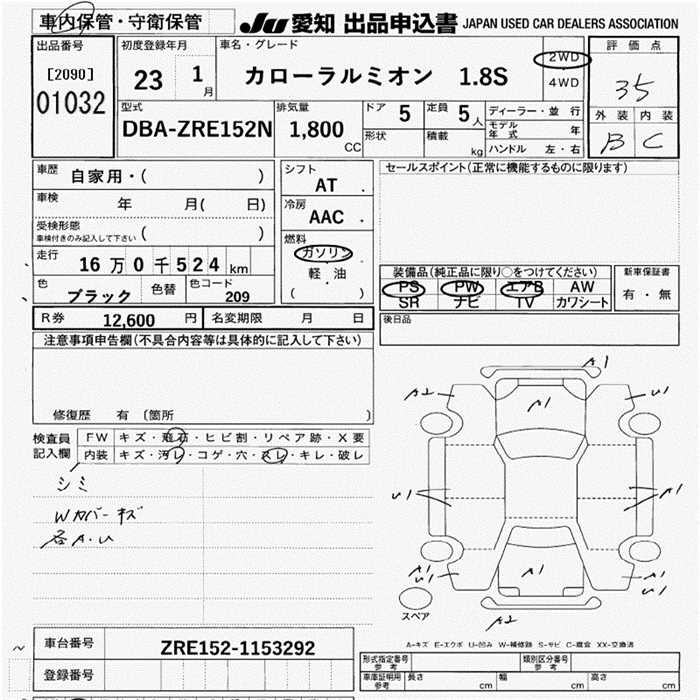 車内保管・守衛保管
JU愛知 出品申込書 JAPAN USED CAR DEALERS ASSOCIATION
出品番号 初度登録年月 車名・グレード 評価点
[2090] 01032
23 1月
カローラルミオン 1.8S
2WD
4WD
35
外装 内装
B C
型式 排気量 ドア 5 定員 5人 ディーラー・並行
DBA-ZRE152N 1,800CC
形状 積載 kg モデル年式 年
ハンドル 左・右
車歴 自家用・( )
シフト AT
セールスポイント(正常に機能するものに限ります)
車検 年 月( 日)
冷房 AAC
受検形態 ( )
車検付きのみ記入して下さい
燃料 ガソリン
軽・油
( )
走行 16万0千524km
色 ブラック 色替 色コード 209
装備品(純正品に限り○をつけてください) 新車保証書
PS PW エアB AW 有・無
SR ナビ TV カワシート
R券 12,600円 名変期限 月 日
後日品
注意事項申告欄(不具合内容等は具体的に記入して下さい)
修復歴 有 〔箇所 〕
検査員記入欄 FW キズ・飛石・ヒビ割・リペア跡・X要
内装 キズ・汚レ・コゲ・穴・スレ・キレ・破レ
シミ
Wカバーキズ
各A.U
A1
A2 A1 U1
U1 A1
A1 U1 A1 A1 U1
スペア A2
A-キズ E-エクボ U-凹み W-補修跡 S-サビ C-腐食 XX-交換済
車台番号 ZRE152-1153292
登録番号
形式指定番号 参考 類別区分番号 参考
車庫証明用 参考 長さ cm 幅 cm 高さ cm